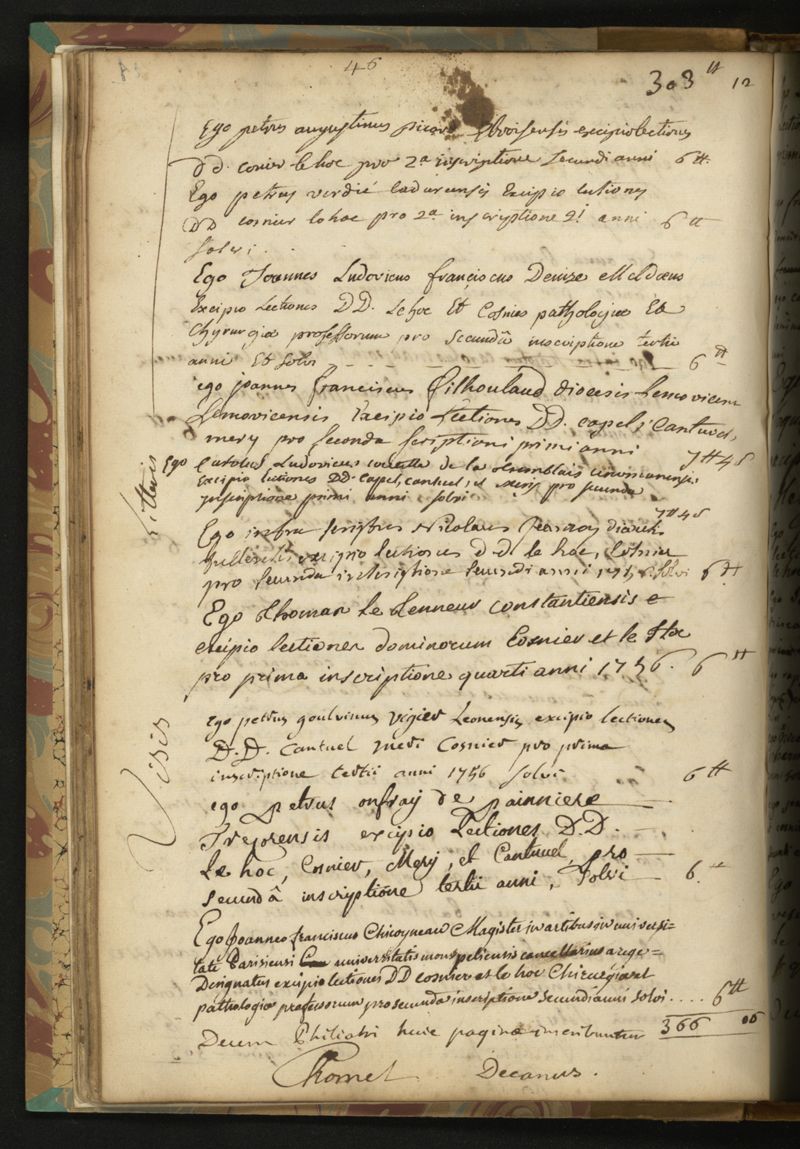 46
303 ₶ 12
Ego petrus augustinus picard excipio lectiones
dd. cosnier le hoc pro 2a inscriptione secundi anni 6 ₶
Ego petrus verdié cadurcensis Excipio lectiones
DD cosnier lehoc pro 2a inscriptione 2i anni 6 ₶
solvi.
Ego Joannes Ludovicus franciscus Denize Meldæus
Excipio Lectiones DD. Lehoc Et Cosnier pathologiæ Et
Chyrurgiæ professorum pro secundâ inscriptione tertii
anni Et solvi 6 ₶
ego joannes franciscus filhoulaud diocesis Lemovicens
Lemovicensis Excipio Lectiones DD. capel, Cantuel,
mery pro seconda scriptioni primi anni 7 ₶ 4 s
Ego Ludovicus de la cenomanensis
Excipio lectiones DD. capel, cantuel, et pro secunda
inscriptione primi anni solvi 7 ₶ 4 s
Ego infra Nicolaus
excipio lectiones d d le hoc, Cosnier
pro secunda inscriptione secundi anni solvi 6 ₶
Ego thomas Le Lenneur constantiensis
excipio lectiones dominorum Cosnier et le Hoc
pro prima inscriptione quarti anni 1756. 6 ₶
ego petrus goulvinus vigier Leonensis excipio lectiones
D. D. Cantuel meri Cosnier pro prima
inscriptione tertii anni 1756 solvi 6 ₶
ego petrus onfray de
Trejorensis excipio Lectiones D.D.
Le hoc, Cosnier, Mery, et Cantuel, pro
secundâ inscriptione tertii anni, solvi 6. ₶
Ego Joannes franciscus Chicoyneau Magister in artibus in universi-
tate Parisiensi universitatis monspeliensis cancellarius a rege
Designatus excipio lectiones DD cosnier et le hoc Chirurgiæ et
pathologiæ professorum pro secunda inscriptione secundi anni solvi .... 6 ₶
Decem Philiatri huic paginæ inscribuntur 366 06
Chomel Decanus.